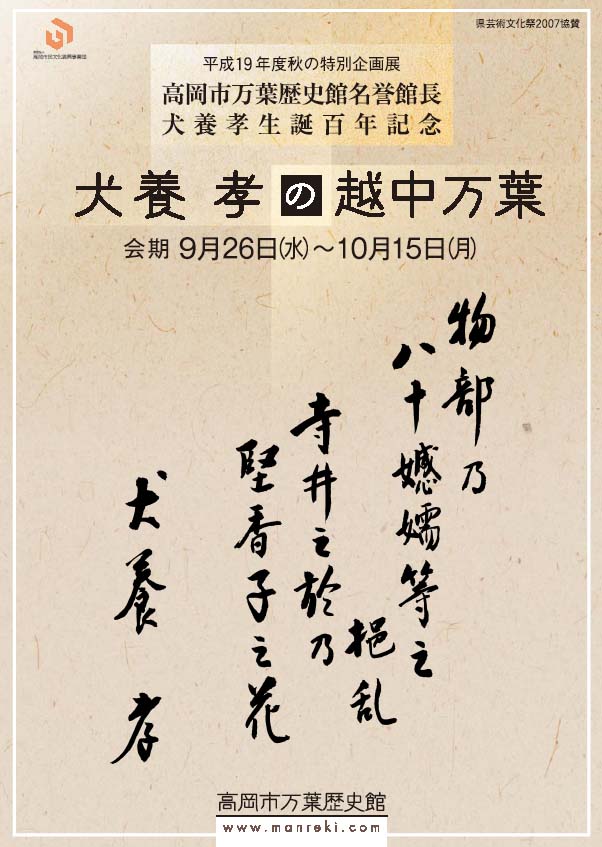 県芸術文化祭2007協賛
高岡市民文化振興事業団
平成19年度秋の特別企画展
高岡市万葉歴史館名誉館長
犬養孝生誕百年記念
犬養 孝の越中万葉
会期 9月26日(水)～10月15日(月)
物部乃
八十嬬嬬等之
挹乱
寺井之於乃
堅香子之花
犬養孝
高岡市万葉歴史館
www.manreki.com